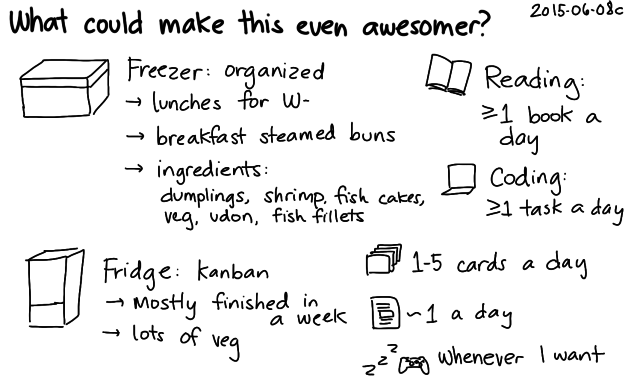 What could make this even awesomer?
2015-06-08c
Freezer: organized
→ lunches for W-
→ breakfast steamed buns
→ ingredients:
dumplings, shrimp, fish cakes,
veg, udon, fish fillets
Reading:
≥1 book a
day
Coding:
≥1 task a day
Fridge: kanban
→ Mostly finished in
a week
→ lots of veg
1-5 cards a day
~1 a day
zzz
whenever I want